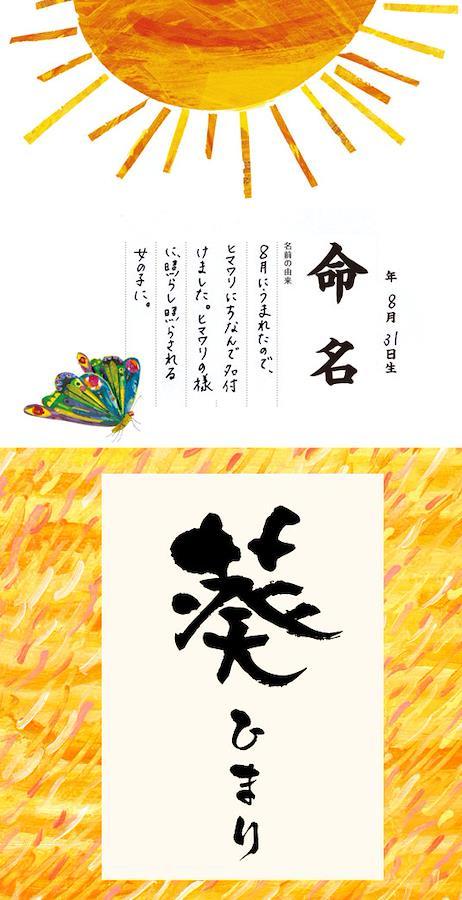 年8月31日生
命名
名前の由来
8月にうまれたので、
ヒマワリにちなんで名付
けました。ヒマワリの様
に、照らし照らされる
女の子に。
葵
ひまり